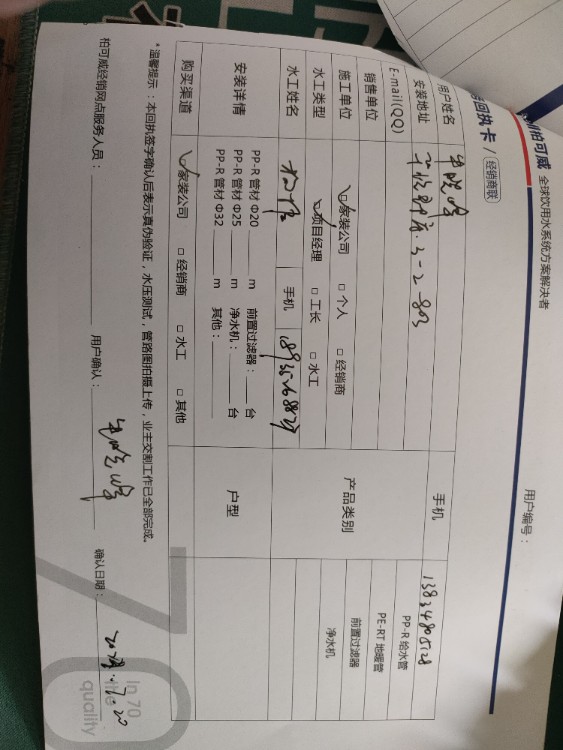 柏可威 全球饮用水系统方案解决者
回执卡 / 经销商联
用户编号：
用户姓名 手机 13834805128
安装地址 3-2-803
E-mail(QQ)
销售单位
施工单位 ☑家装公司 □ 个人 □ 经销商
水工类型 ☑项目经理 □ 工长 □ 水工
水工姓名 手机
产品类别
PP-R 给水管
PE-RT 地暖管
前置过滤器
净水机
安装详情
PP-R 管材 Φ20 m 前置过滤器： 台
PP-R 管材 Φ25 m 净水机： 台
PP-R 管材 Φ32 m 其他：
户型
购买渠道 ☑家装公司 □ 经销商 □ 水工 □ 其他
*温馨提示：本回执签字确认后表示真伪验证，水压测试，管路图拍摄上传，业主交割工作已全部完成。
柏可威经销网点服务人员： 用户确认： 确认日期：
70
In 70
life
quality